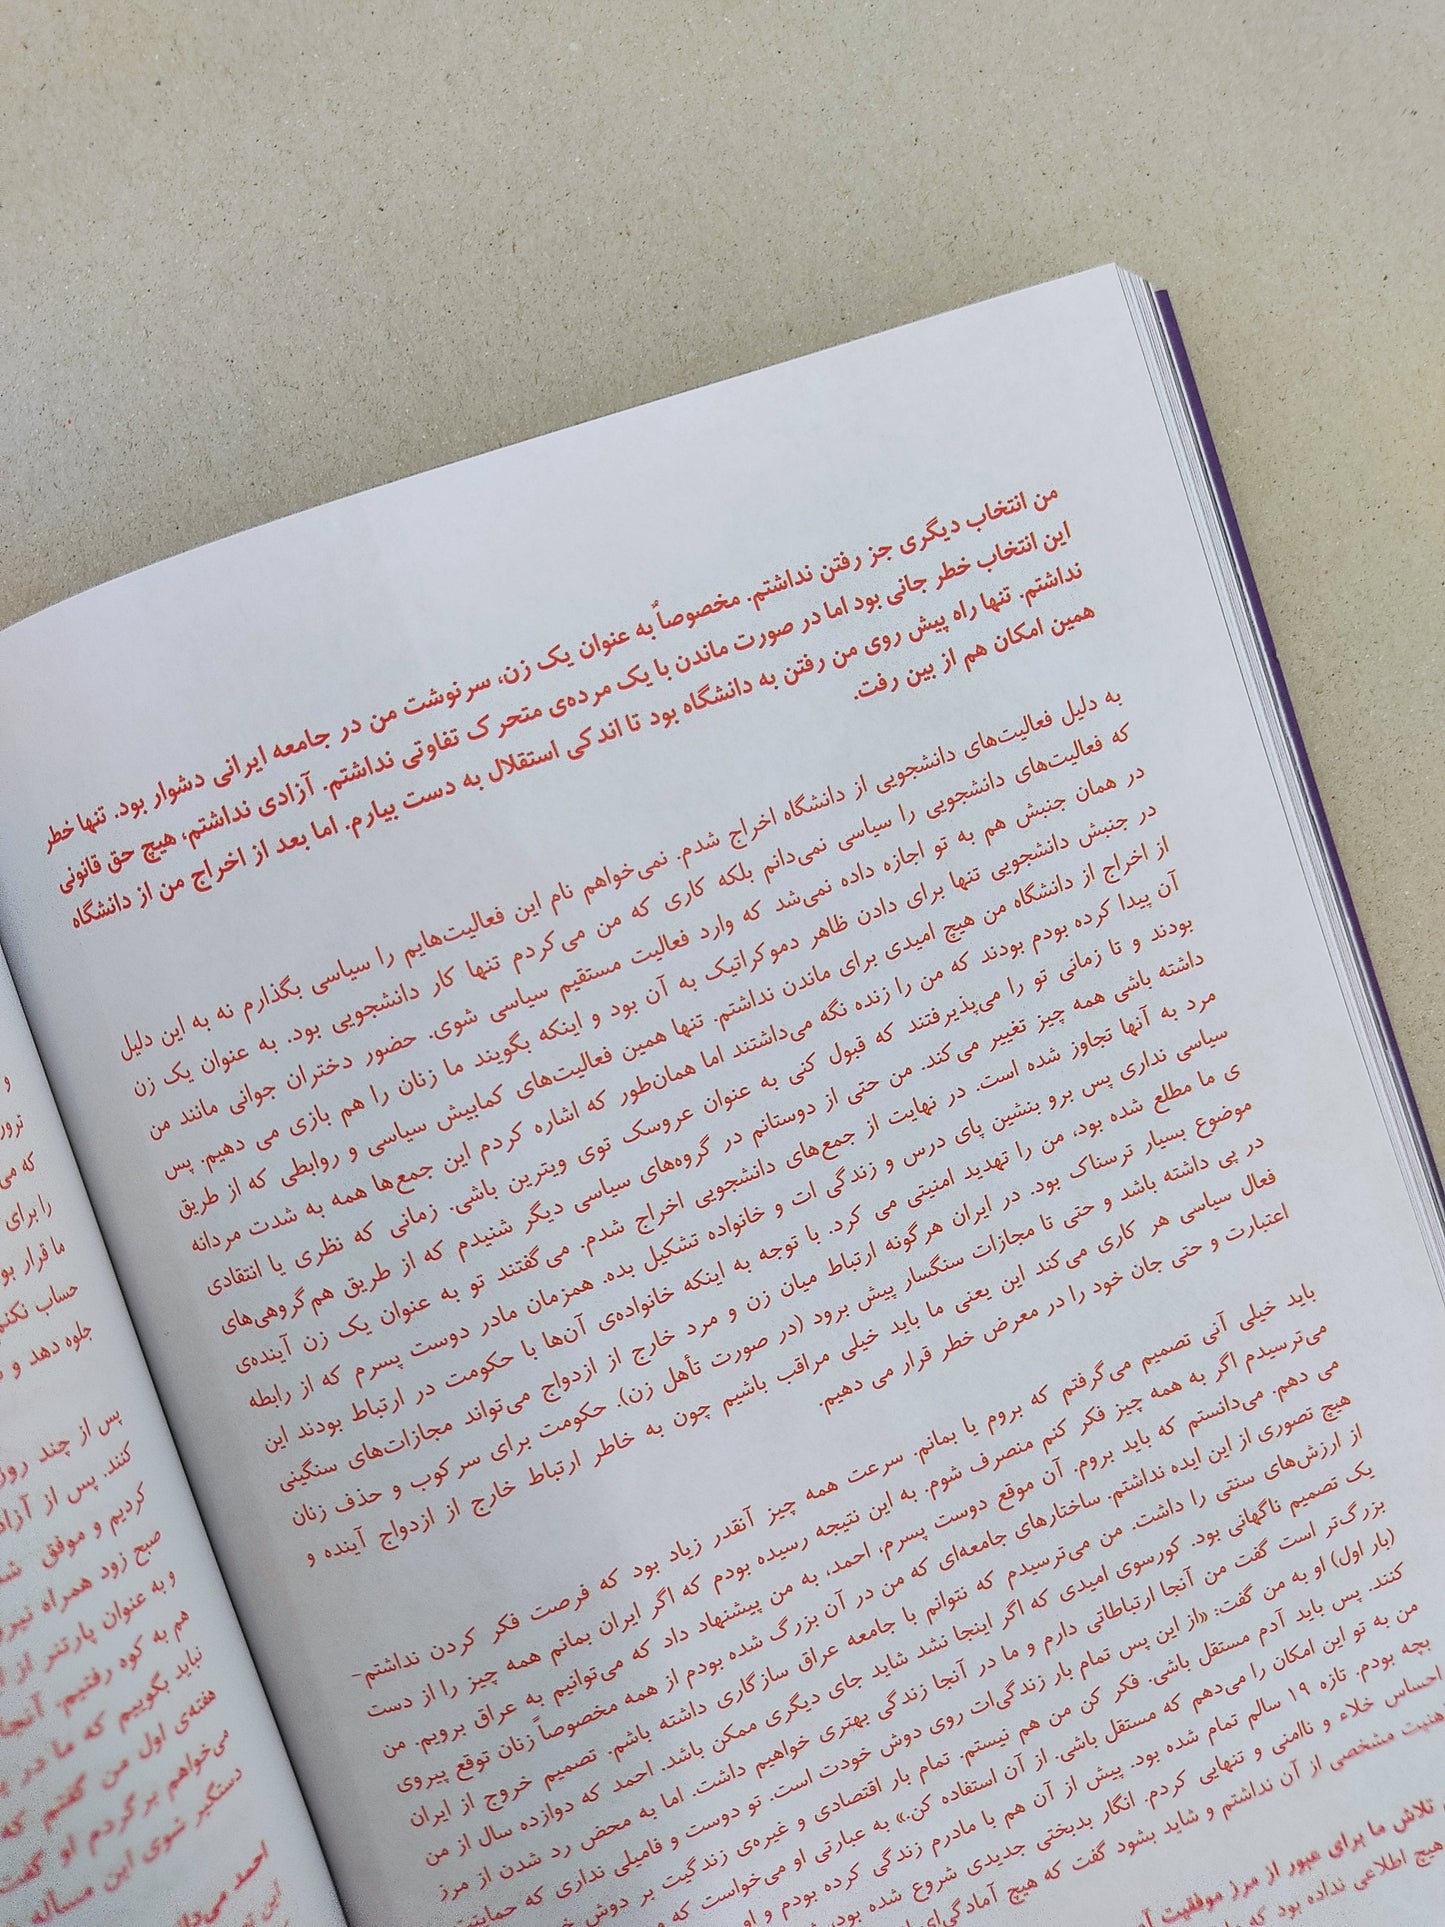 من انتخاب دیگری جز رفتن نداشتم. مخصوصاٌ به عنوان یک زن، سرنوشت من در جامعه ایرانی دشوار بود. تنها خطر
این انتخاب خطر جانی بود اما در صورت ماندن با یک مرده‌ی متحرک تفاوتی نداشتم. آزادی نداشتم، هیچ حق قانونی
نداشتم. تنها راه پیش روی من رفتن به دانشگاه بود تا اندکی استقلال به دست بیارم. اما بعد از اخراج من از دانشگاه
همین امکان هم از بین رفت.
به دلیل فعالیت‌های دانشجویی از دانشگاه اخراج شدم. نمی‌خواهم نام این فعالیت‌هایم را سیاسی بگذارم نه به این دلیل
که فعالیت‌های دانشجویی را سیاسی نمی‌دانم بلکه کاری که من می‌کردم تنها کار دانشجویی بود. به عنوان یک زن
در همان جنبش هم به تو اجازه داده نمی‌شد که وارد فعالیت مستقیم سیاسی شوی. حضور دختران جوانی مانند من
در جنبش دانشجویی تنها برای دادن ظاهر دموکراتیک به آن بود و اینکه بگویند ما زنان را هم بازی می دهیم. پس
از اخراج از دانشگاه من هیچ امیدی برای ماندن نداشتم. تنها همین فعالیت‌های کمابیش سیاسی و روابطی که از طریق
آن پیدا کرده بودم بودند که من را زنده نگه می‌داشتند اما همان‌طور که اشاره کردم این جمع‌ها همه به شدت مردانه
بودند و تا زمانی تو را می‌پذیرفتند که قبول کنی به عنوان عروسک توی ویترین باشی. زمانی که نظری یا انتقادی
داشته باشی همه چیز تغییر می‌کند. من حتی از دوستانم در گروه‌های سیاسی دیگر شنیدم که از طریق هم‌گروهی‌های
مرد به آنها تجاوز شده است. در نهایت از جمع‌های دانشجویی اخراج شدم. می‌گفتند تو به عنوان یک زن آینده‌ی
سیاسی نداری پس برو بنشین پای درس و زندگی ات و خانواده تشکیل بده. همزمان مادر دوست پسرم که از رابطه
ی ما مطلع شده بود، من را تهدید امنیتی می کرد. با توجه به اینکه خانواده‌ی آن‌ها با حکومت در ارتباط بودند این
موضوع بسیار ترسناک بود. در ایران هرگونه ارتباط میان زن و مرد خارج از ازدواج می‌تواند مجازات‌های سنگینی
در پی داشته باشد و حتی تا مجازات سنگسار پیش برود (در صورت تأهل زن). حکومت برای سرکوب و حذف زنان
فعال سیاسی هر کاری می‌کند این یعنی ما باید خیلی مراقب باشیم چون به خاطر ارتباط خارج از ازدواج آینده و
اعتبارت و حتی جان خود را در معرض خطر قرار می دهیم.
باید خیلی آنی تصمیم می‌گرفتم که بروم یا بمانم. سرعت همه چیز آنقدر زیاد بود که فرصت فکر کردن نداشتم-
می‌ترسیدم اگر به همه چیز فکر کنم منصرف شوم. به این نتیجه رسیده بودم که اگر ایران بمانم همه چیز را از دست
می دهم. می‌دانستم که باید بروم. آن موقع دوست پسرم، احمد، به من پیشنهاد داد که می‌توانیم به عراق برویم. من
هیچ تصوری از این ایده نداشتم. ساختارهای جامعه‌ای که من در آن بزرگ شده بودم از همه مخصوصاً زنان توقع پیروی
از ارزش‌های سنتی را داشت. من می‌ترسیدم که نتوانم با جامعه عراق سازگاری داشته باشم. تصمیم خروج از ایران
یک تصمیم ناگهانی بود. کورسوی امیدی که اگر اینجا نشد شاید جای دیگری ممکن باشد. احمد که دوازده سال از من
بزرگ‌تر است گفت من آنجا ارتباطاتی دارم و ما در آنجا زندگی بهتری خواهیم داشت. اما به محض رد شدن از مرز
(بار اول) او به من گفت: «از این پس تمام بار زندگی‌ات روی دوش خودت است. تو دوست و فامیلی نداری که حمایتت
کنند. پس باید آدم مستقل باشی. فکر کن من هم نیستم. تمام بار اقتصادی و غیره‌ی زندگیت بر دوش
من به تو این امکان را می‌دهم که مستقل باشی. از آن استفاده کن.» به عبارتی او می‌خواست که
بچه بودم. تازه ۱۹ سالم تمام شده بود. پیش از آن هم با مادرم زندگی کرده بودم و او
احساس خلاء و ناامنی و تنهایی کردم. انگار بدبختی جدیدی شروع شده بود.
مشخصی از آن نداشتم و شاید بشود گفت که هیچ آمادگی‌ای
تلاش ما برای عبور از مرز موفقیت
هیچ اطلاعی نداده بود که
و
که می
را برای
ما قرار بو
حساب نکنم
جلوه دهد و
پس از چند روز
کنند. پس از آزاد
کردیم و موفق
صبح زود همراه
و به عنوان پارتنر از
هم به کوه رفتیم. آنجا
نباید بگوییم که ما در
هفته‌ی اول من گفتم که
می‌خواهم برگردم او گفت
دستگیر شوی این مسأله
احمد
این